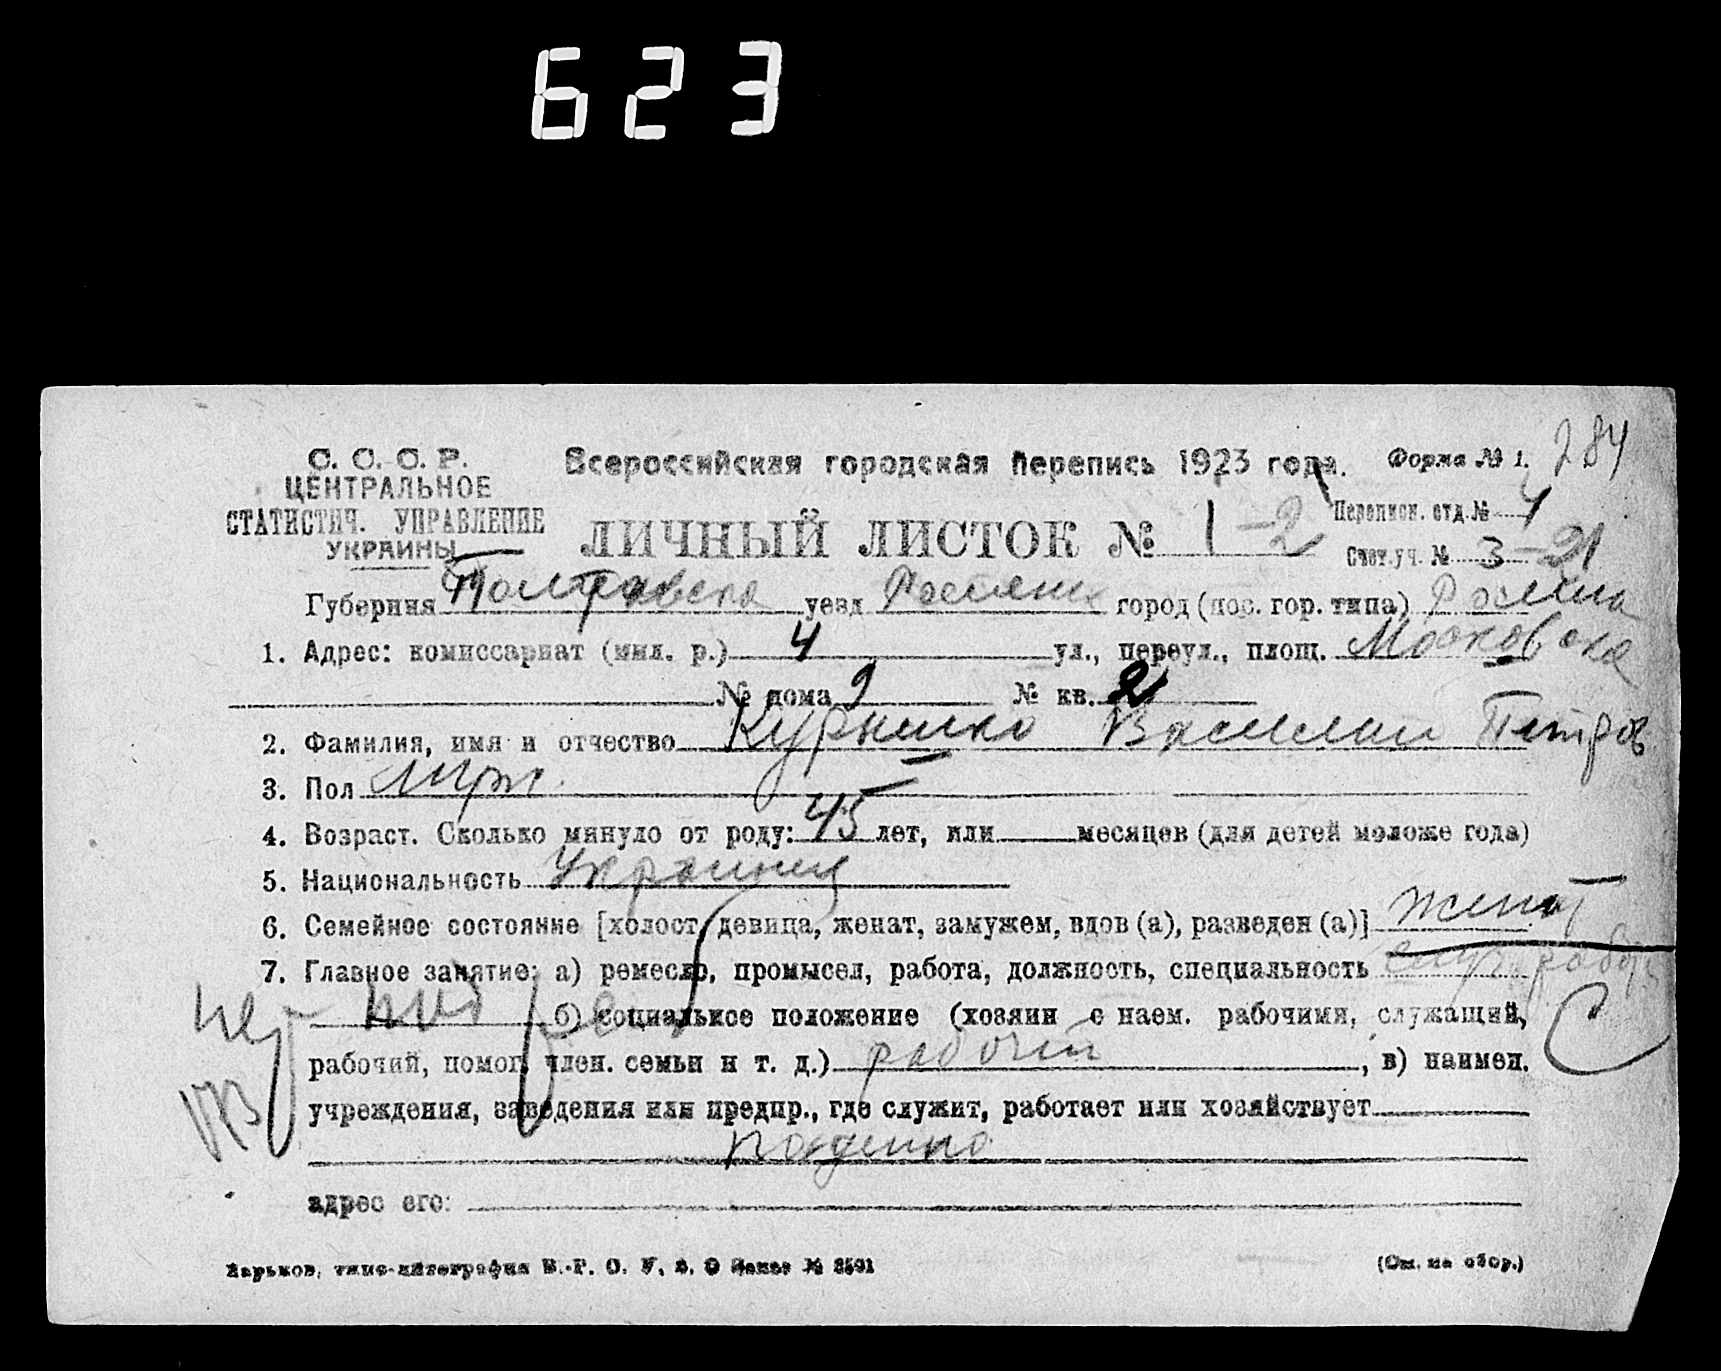 623
С. С. С. Р.
ЦЕНТРАЛЬНОЕ
СТАТИСТИЧ. УПРАВЛЕНИЕ
УКРАИНЫ
Всероссийская городская перепись 1923 года.
Форма № 1.
284
ЛИЧНЫЙ ЛИСТОК № 1-2
Перепион. отд. № 4
Счет. уч. № 3-21
Губерния Полтавска уезд город (пос. гор. типа)
1. Адрес: комиссариат (мил. р.) 4 ул., переул., площ. Московска
№ дома 9 № кв. 2
2. Фамилия, имя и отчество Василий Петров
3. Пол муж.
4. Возраст. Сколько минуло от роду: 45 лет, или месяцев (для детей моложе года)
5. Национальность Украинец
6. Семейное состояние [холост, девица, женат, замужем, вдов (а), разведен (а)] женат
7. Главное занятие: а) ремесло, промысел, работа, должность, специальность
б) социальное положение (хозяин с наем. рабочими, служащий, С
рабочий, помог. член. семьи и т. д.) рабочий, в) наимен.
учреждения, заведения или предпр., где служит, работает или хозяйствует
поденно
адрес его:
Харьков, типо-литография № 8591
(См. на обор.)